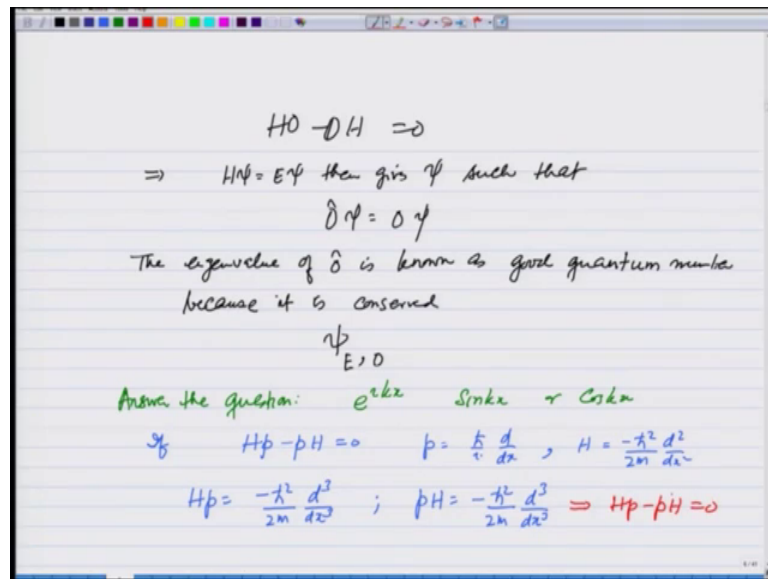 HO - OH = 0
⇒ Hψ = Eψ then gives ψ such that
Ôψ = Oψ
The eigenvalue of ô is known as good quantum number
because it is conserved
ψ_{E,O}
Answer the question: e^{ikx} Sinkx or Coskx
If Hp - pH = 0 p = ħ/i d/dx , H = -ħ²/2m d²/dx²
Hp = -ħ²/2m d³/dx³ ; pH = -ħ²/2m d³/dx³ ⇒ Hp - pH = 0